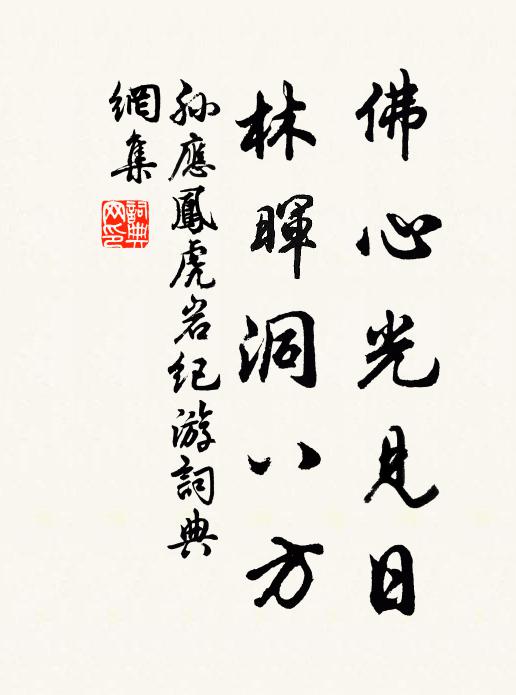 佛心光見日
林暉洞八方
孫應鳳虎岩纪游詞典
網集
詞典
网印